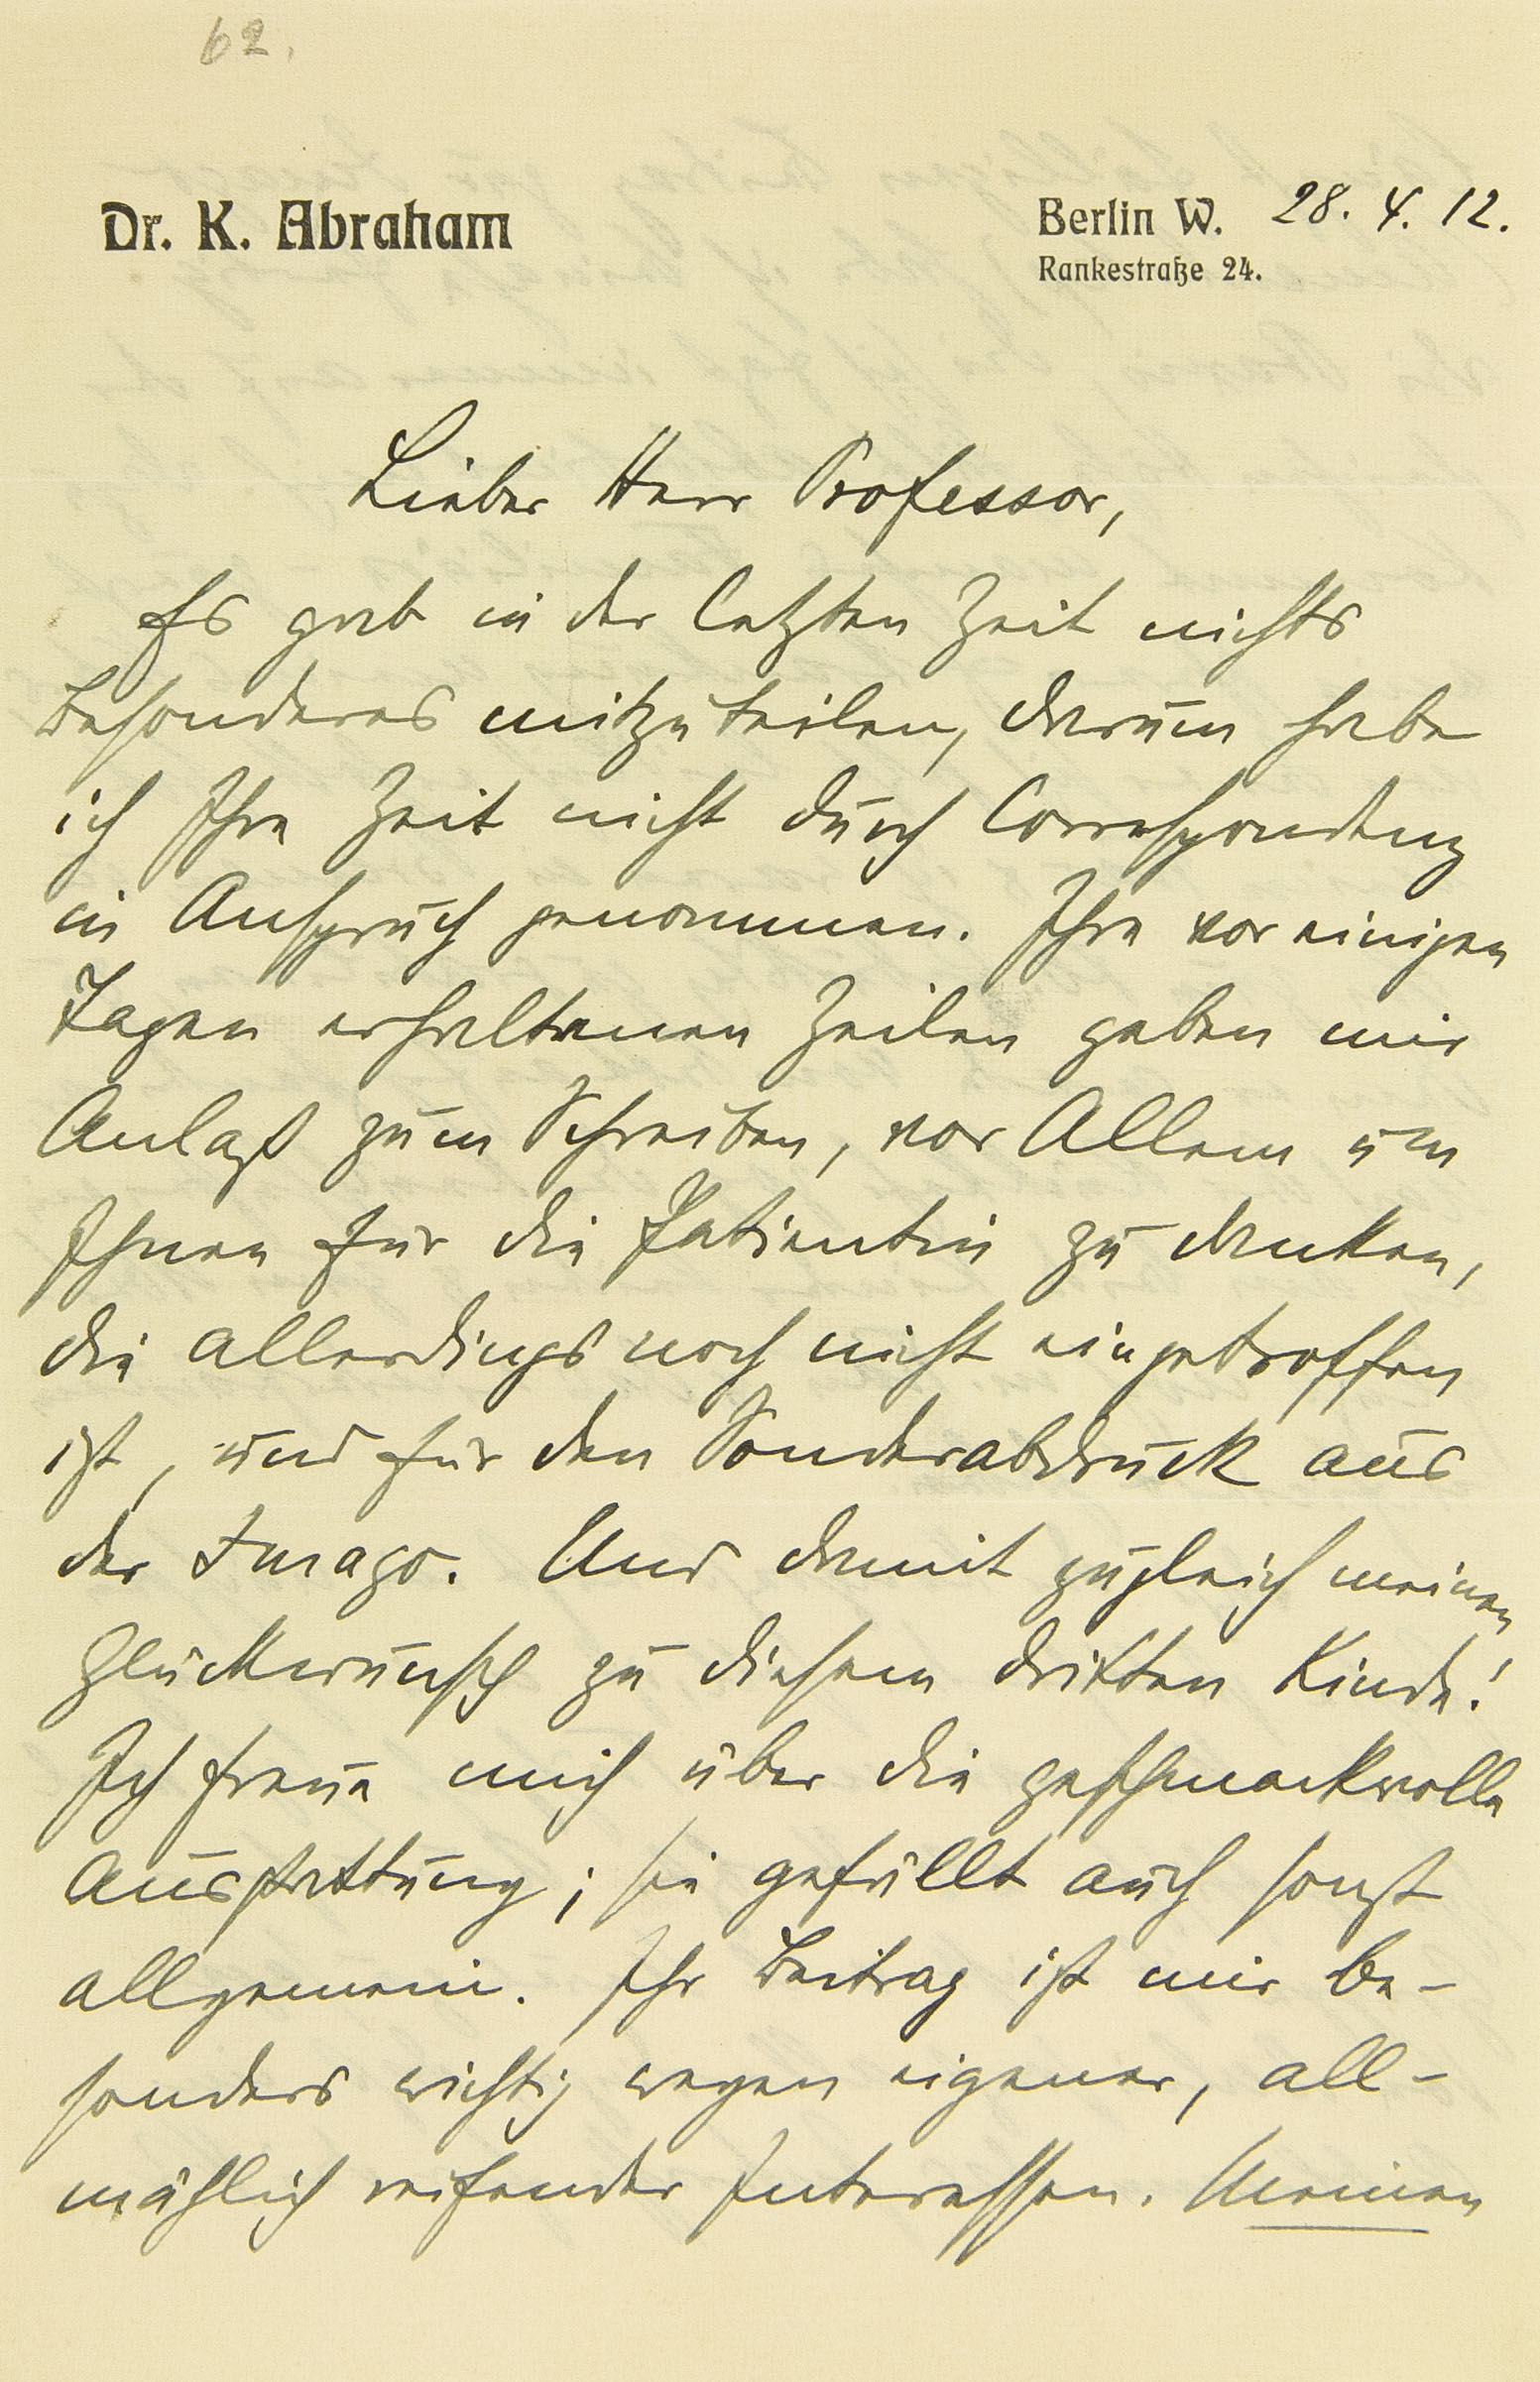 62.
Dr. K. Abraham
Berlin W. 28. 4. 12.
Rankestraße 24.
Lieber Herr Professor,
Es gab in der letzten Zeit nichts
Besonderes mitzuteilen, darum habe
ich Ihre Zeit nicht durch Correspondenz
in Anspruch genommen. Ihre vor einigen
Tagen erhaltenen Zeilen geben mir
Anlaß zum Schreiben, vor Allem um
Ihnen für die Patientin zu danken,
die allerdings noch nicht eingetroffen
ist, und für den Sonderabdruck aus
der Imago. Und damit zugleich meinen
Glückwunsch zu diesem dritten Kinde!
Ich freue mich über die geschmackvolle
Ausstattung; sie gefällt auch sonst
allgemein. Ihr Beitrag ist mir be-
sonders wichtig wegen eigener, all-
mählich reifender Interessen. Meinen